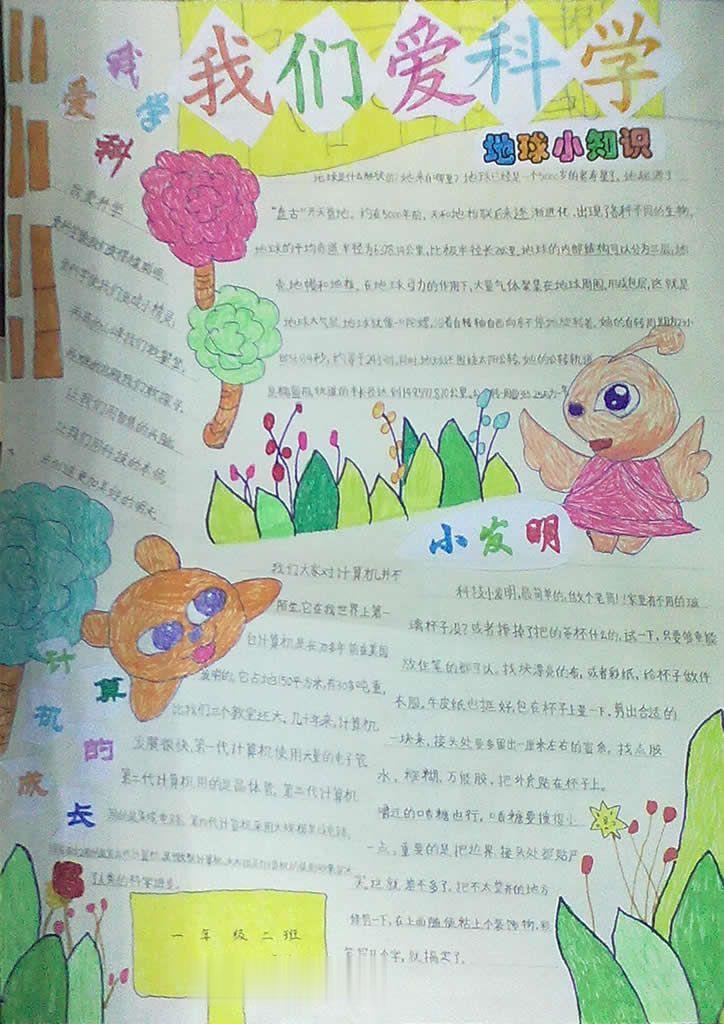 我们爱科学
我爱科学
地球小知识
我爱科学
让我们用智慧的头脑
让我们用科技的本领
去创造更加美好的明天
地球是什么形状的?她来自哪里?地球已经是一个5000岁的老寿星了,她起源于
"盘古"开天辟地。约在5000年前,天和地
逐渐进化,出现了各种不同的生物。
地球的平均赤道半径为6378.14公里,比极半径长21公里。地球的内部结构可以分为三层:地
壳、地幔和地核。在地球引力的作用下,大量气体聚集在地球周围,形成包层,这就是
地球大气层。地球就像一只陀螺,沿着自转轴自西向东不停地旋转着。她的自转周期为23小
时56分4秒,约等于24小时,同时,地球还围绕太阳公转,她的公转轨道
是椭圆形,轨道的半长径达到149,597,870公里,公转一周要365.25天为一年
小发明
科技小发明,最简单的,做个笔筒!家里有不用的玻
璃杯子没?或者摔掉了把的茶杯什么的,试一下,只要够重能
放住笔的都可以。找块漂亮的布,或者彩纸,给杯子做件
衣服,牛皮纸也挺好,包在杯子上量一下,剪出合适的
一块来,接头处要多留出一厘米左右的富余,找点胶
水,糨糊,万能胶,把外套贴在杯子上。
嚼过的口香糖也行,口香糖要搜得小
一点,重要的是把边界接头处都贴严
实拉就差不多了,把不太整齐的地方
修剪一下,在上面随便粘上个装饰物,或
写那几个字,就搞定了。
计算机的成长
我们大家对计算机并不
陌生,它在我世界上第一
台计算机是长70多年前在美国
发明的。它占地150平方米,有30多吨重,
比我们三个教室还大。几十年来,计算机
发展很快,第一代计算机使用大量的电子管
第二代计算机用的是晶体管,第三代计算机
用的是集成电路,第四代计算机采用大规模集成电路,
的科学进步。
一年级二班